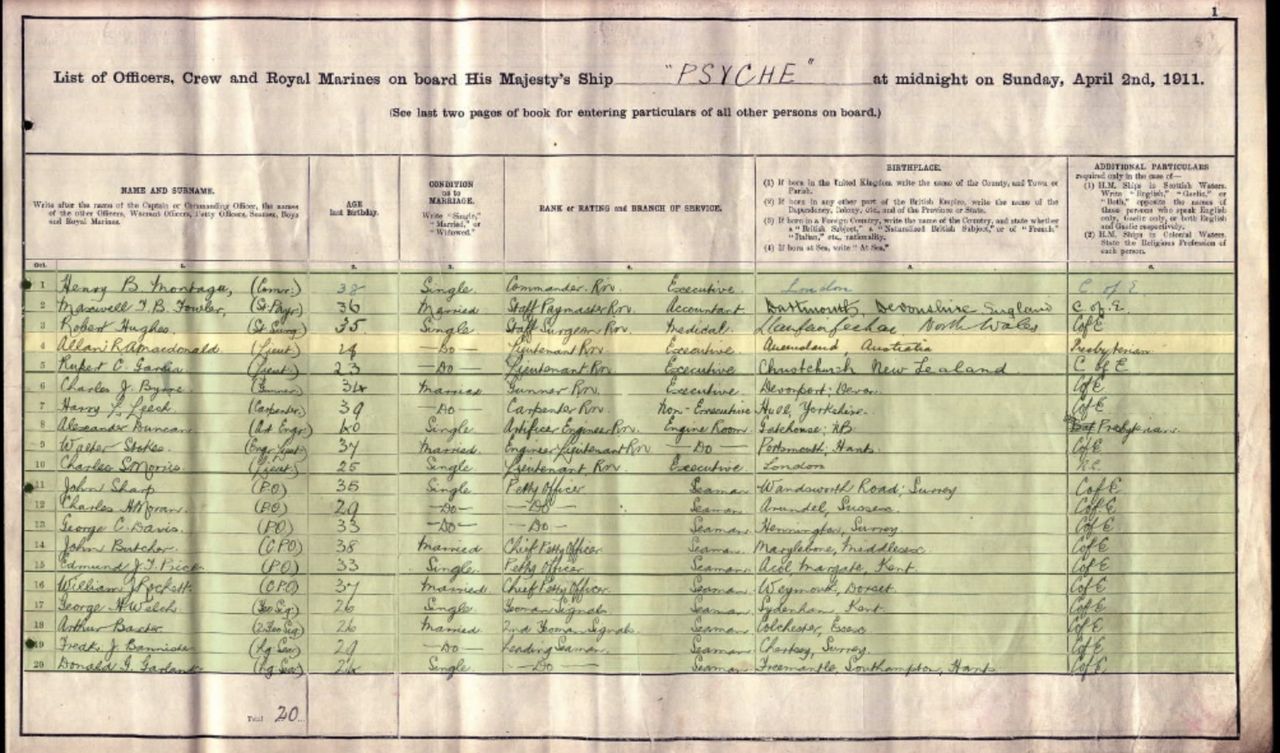 1
List of Officers, Crew and Royal Marines on board His Majesty's Ship "PSYCHE" at midnight on Sunday, April 2nd, 1911.
(See last two pages of book for entering particulars of all other persons on board.)
NAME AND SURNAME.
Write after the name of the Captain or Commanding Officer, the names of the other Officers, Warrant Officers, Petty Officers, Seamen, Boys and Royal Marines.
AGE last Birthday.
CONDITION as to MARRIAGE.
Write "Single," "Married," or "Widowed."
RANK or RATING and BRANCH OF SERVICE.
BIRTHPLACE.
(1) If born in the United Kingdom, write the name of the County, and Town or Parish.
(2) If born in any other part of the British Empire, write the name of the Dependency, Colony, etc., and of the Province or State.
(3) If born in a Foreign Country, write the name of the Country, and state whether a "British Subject," a "Naturalized British Subject," or of "French," "Italian," etc., nationality.
(4) If born at Sea, write "At Sea."
ADDITIONAL PARTICULARS
required only in the case of—
(1) H.M. Ships in Scottish Waters. Write "English," "Gaelic," or "Both," opposite the names of those persons who speak English only, Gaelic only, or both English and Gaelic respectively.
(2) H.M. Ships in Colonial Waters. State the Religious Profession of each person.
1. 2. 3. 4. 5. 6.
1 Henry B. Montagu, (Comr.) 38 Single. Commander. R.N. Executive. London C. of E.
2 Maxwell T. B. Fowler, (St Payr.) 36 Married Staff Paymaster R.N. Accountant. Dartmouth, Devonshire England C. of E.
3 Robert Hughes. (St Surg) 35. Single. Staff Surgeon R.N. Medical. North Wales C of E
4 Allan R. A. Macdonald (Lieut) Do Lieutenant R.N. Executive Queensland, Australia Presbyterian
5 Rupert C. Garsia (Lieut) 23 Do Lieutenant R.N. Executive. Christchurch New Zealand C of E
6 Charles J. Byrne (Gunner) 34 Married Gunner R.N. Executive Devonport; Devon. C of E
7 Harry L. Leech (Carpenter) 39 Do Carpenter R.N. Non-Executive Hull, Yorkshire. C of E
8 Alexander Duncan. (Art Engr) 40 Single. Artificer Engineer R.N. Engine Room. Gatehouse; N.B. Presbyterian
9 Walter Stokes. (Engr Lieut) 37 Married Engineer Lieutenant R.N. Do Portsmouth, Hants. C of E
10 Charles S. Morris. (Lieut) 25 Single Lieutenant R.N. Executive. London R.C.
11 John Sharp (PO) 35 Single Petty Officer Seaman Wandsworth Road; Surrey C of E
12 Charles H. Moran. (PO) 29 Do Do Seaman. Arundel, Sussex C of E
13 George C. Davis. (PO) 33 Do Do Seaman. Kennington, Surrey. C of E
14 John Butcher. (CPO) 38 Married Chief Petty Officer Seaman. Marylebone, Middlesex C of E
15 Edmund J. T. Price. (PO) 33 Single. Petty Officer Seaman. Acol, Margate, Kent. C of E
16 William J. Rockett. (CPO) 37 Married Chief Petty Officer. Seaman. Weymouth, Dorset C of E
17 George H. Welch (Yeo Sig) 26 Single. Yeoman Signals Seaman. Sydenham Kent. C of E
18 Arthur Baxter (2 Yeo Sig) 26 Married 2nd Yeoman Signals. Seaman. Colchester, Essex C of E
19 J. Bannister (Lg Sea) 29 Do Leading Seaman. Seaman. Chertsey, Surrey. C of E
20 Donald G. Garland (Lg Sea) 24 Single. Do Seaman. Freemantle, Southampton, Hants C of E
Total 20